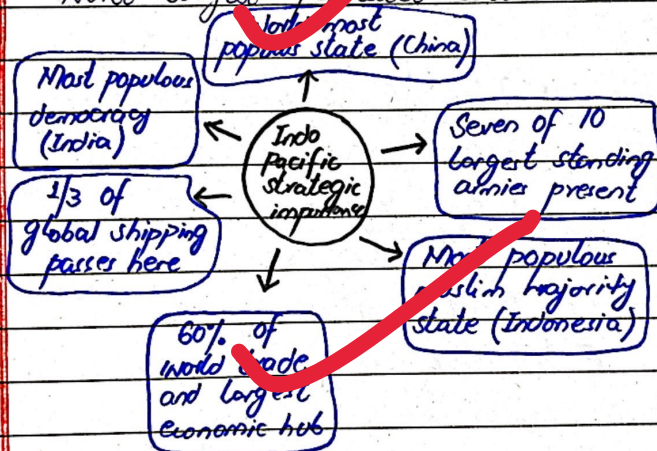 World most
populus state (China)
Most populous
democracy
(India)
Indo
Pacific
strategic
importance
Seven of 10
largest standing
armies present
1/3 of
global shipping
passes here
Most populous
muslim majority
state (Indonesia)
60% of
world trade
and largest
economic hub